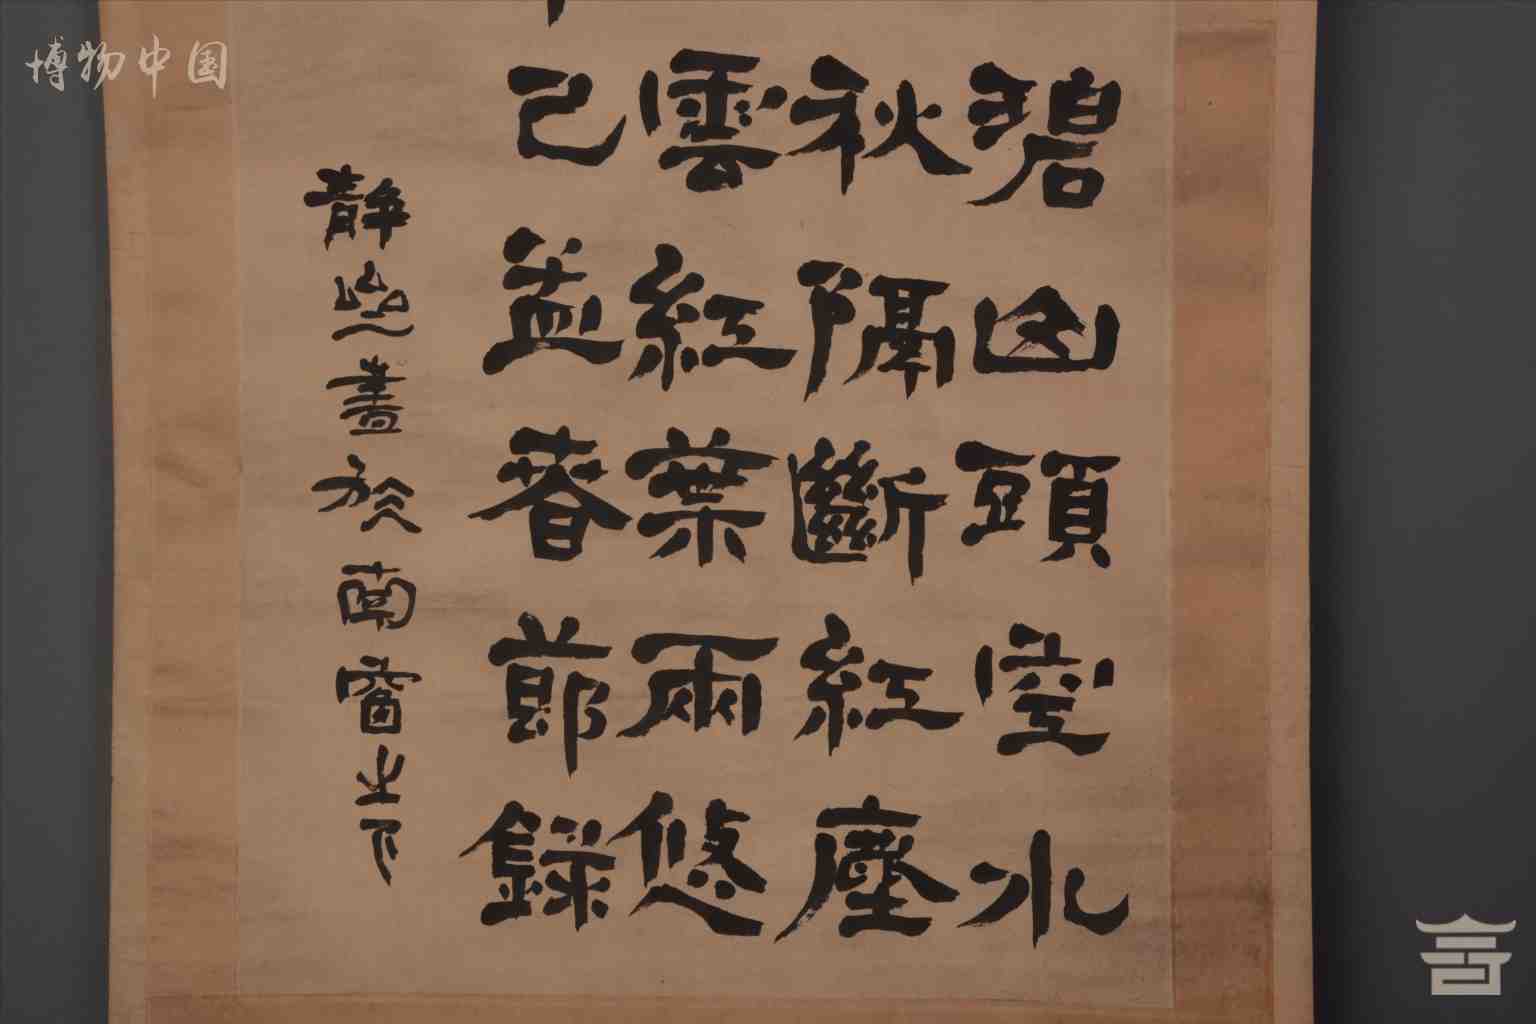 博物中国
碧山頭空水
秋隔斷紅塵
雲紅葉雨悠
己孟春節錄
靜山書於南窗之下